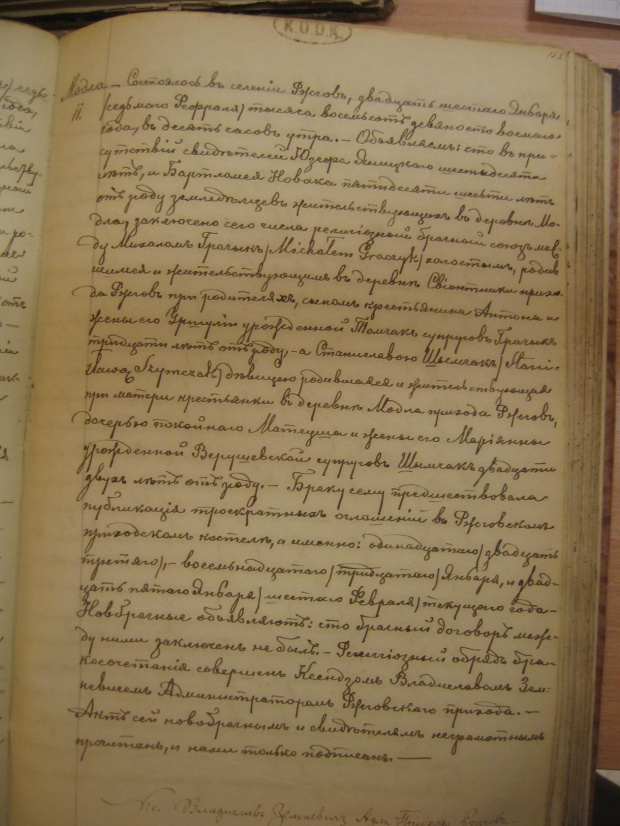 К.О.О.К.
Модла
11.
Состоялось въ селеніи Ржговъ, двадцать шестаго Января
/седьмаго Февраля/ тысяча восемьсотъ девяносто восьмаго
года, въ десять часовъ утра. — Объявляемъ: что въ при-
сутствіи свидѣтелей Юзефа шестьдесятъ
лѣтъ, и Бартломея Новака пятидесяти шести лѣтъ
отъ роду земледѣльцевъ жительствующихъ въ деревнѣ Мо-
дла, заключено сего числа религіозный брачный союзъ меж-
ду Михаломъ Грачыкъ /Michałem Graczyk/ холостымъ, родив-
шимся и жительствующимъ въ деревнѣ Свіонтники прихо-
да Ржговъ при родителяхъ, сыномъ крестьянина Антона и
жены его урожденной Томчакъ супруговъ Грачыкъ
тридцати лѣтъ отъ роду, — а Станиславою Шымчакъ /Stani-
sławą Szymczak/ дѣвицею родившаяся и жительствующая
при матери крестьянки въ деревнѣ Модла прихода Ржговъ,
дочерью покойнаго Матеуша и жены его Маріянны
урожденной Верушевской супруговъ Шымчакъ двадцати
двухъ лѣтъ отъ роду. — Браку сему предшествовала
публикація троекратныхъ оглашеній въ Ржговскомъ
приходскомъ костелѣ, а именно: одинадцатаго /двадцать
третяго/, — восемьнадцатаго /тридцатаго/ Января, и двад-
цать пятаго Января /шестаго Февраля/ текущаго года. —
Новобрачные объявляютъ: что брачный договоръ меж-
ду ними заключенъ не былъ. — Религіозный обрядъ бра-
косочетанія совершенъ Ксендзомъ Владиславомъ Зем-
невичемъ Администраторомъ Ржговскаго прихода. —
Актъ сей новобрачнымъ и свидѣтелямъ неграмотнымъ
прочитанъ, и нами только подписанъ. —
Кс. Владиславъ